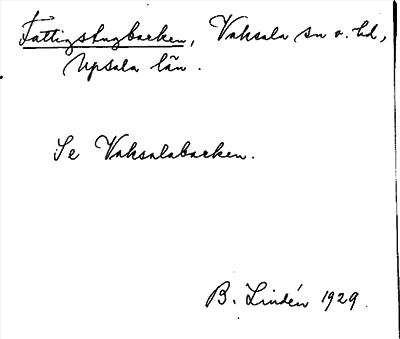 Fattigstugbacken, Vaksala sn o. hd,
Upsala län.
Se Vaksalabacken.
B. Lindén 1929.